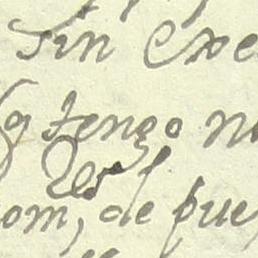 sin exe
q tengo no
om, de pue